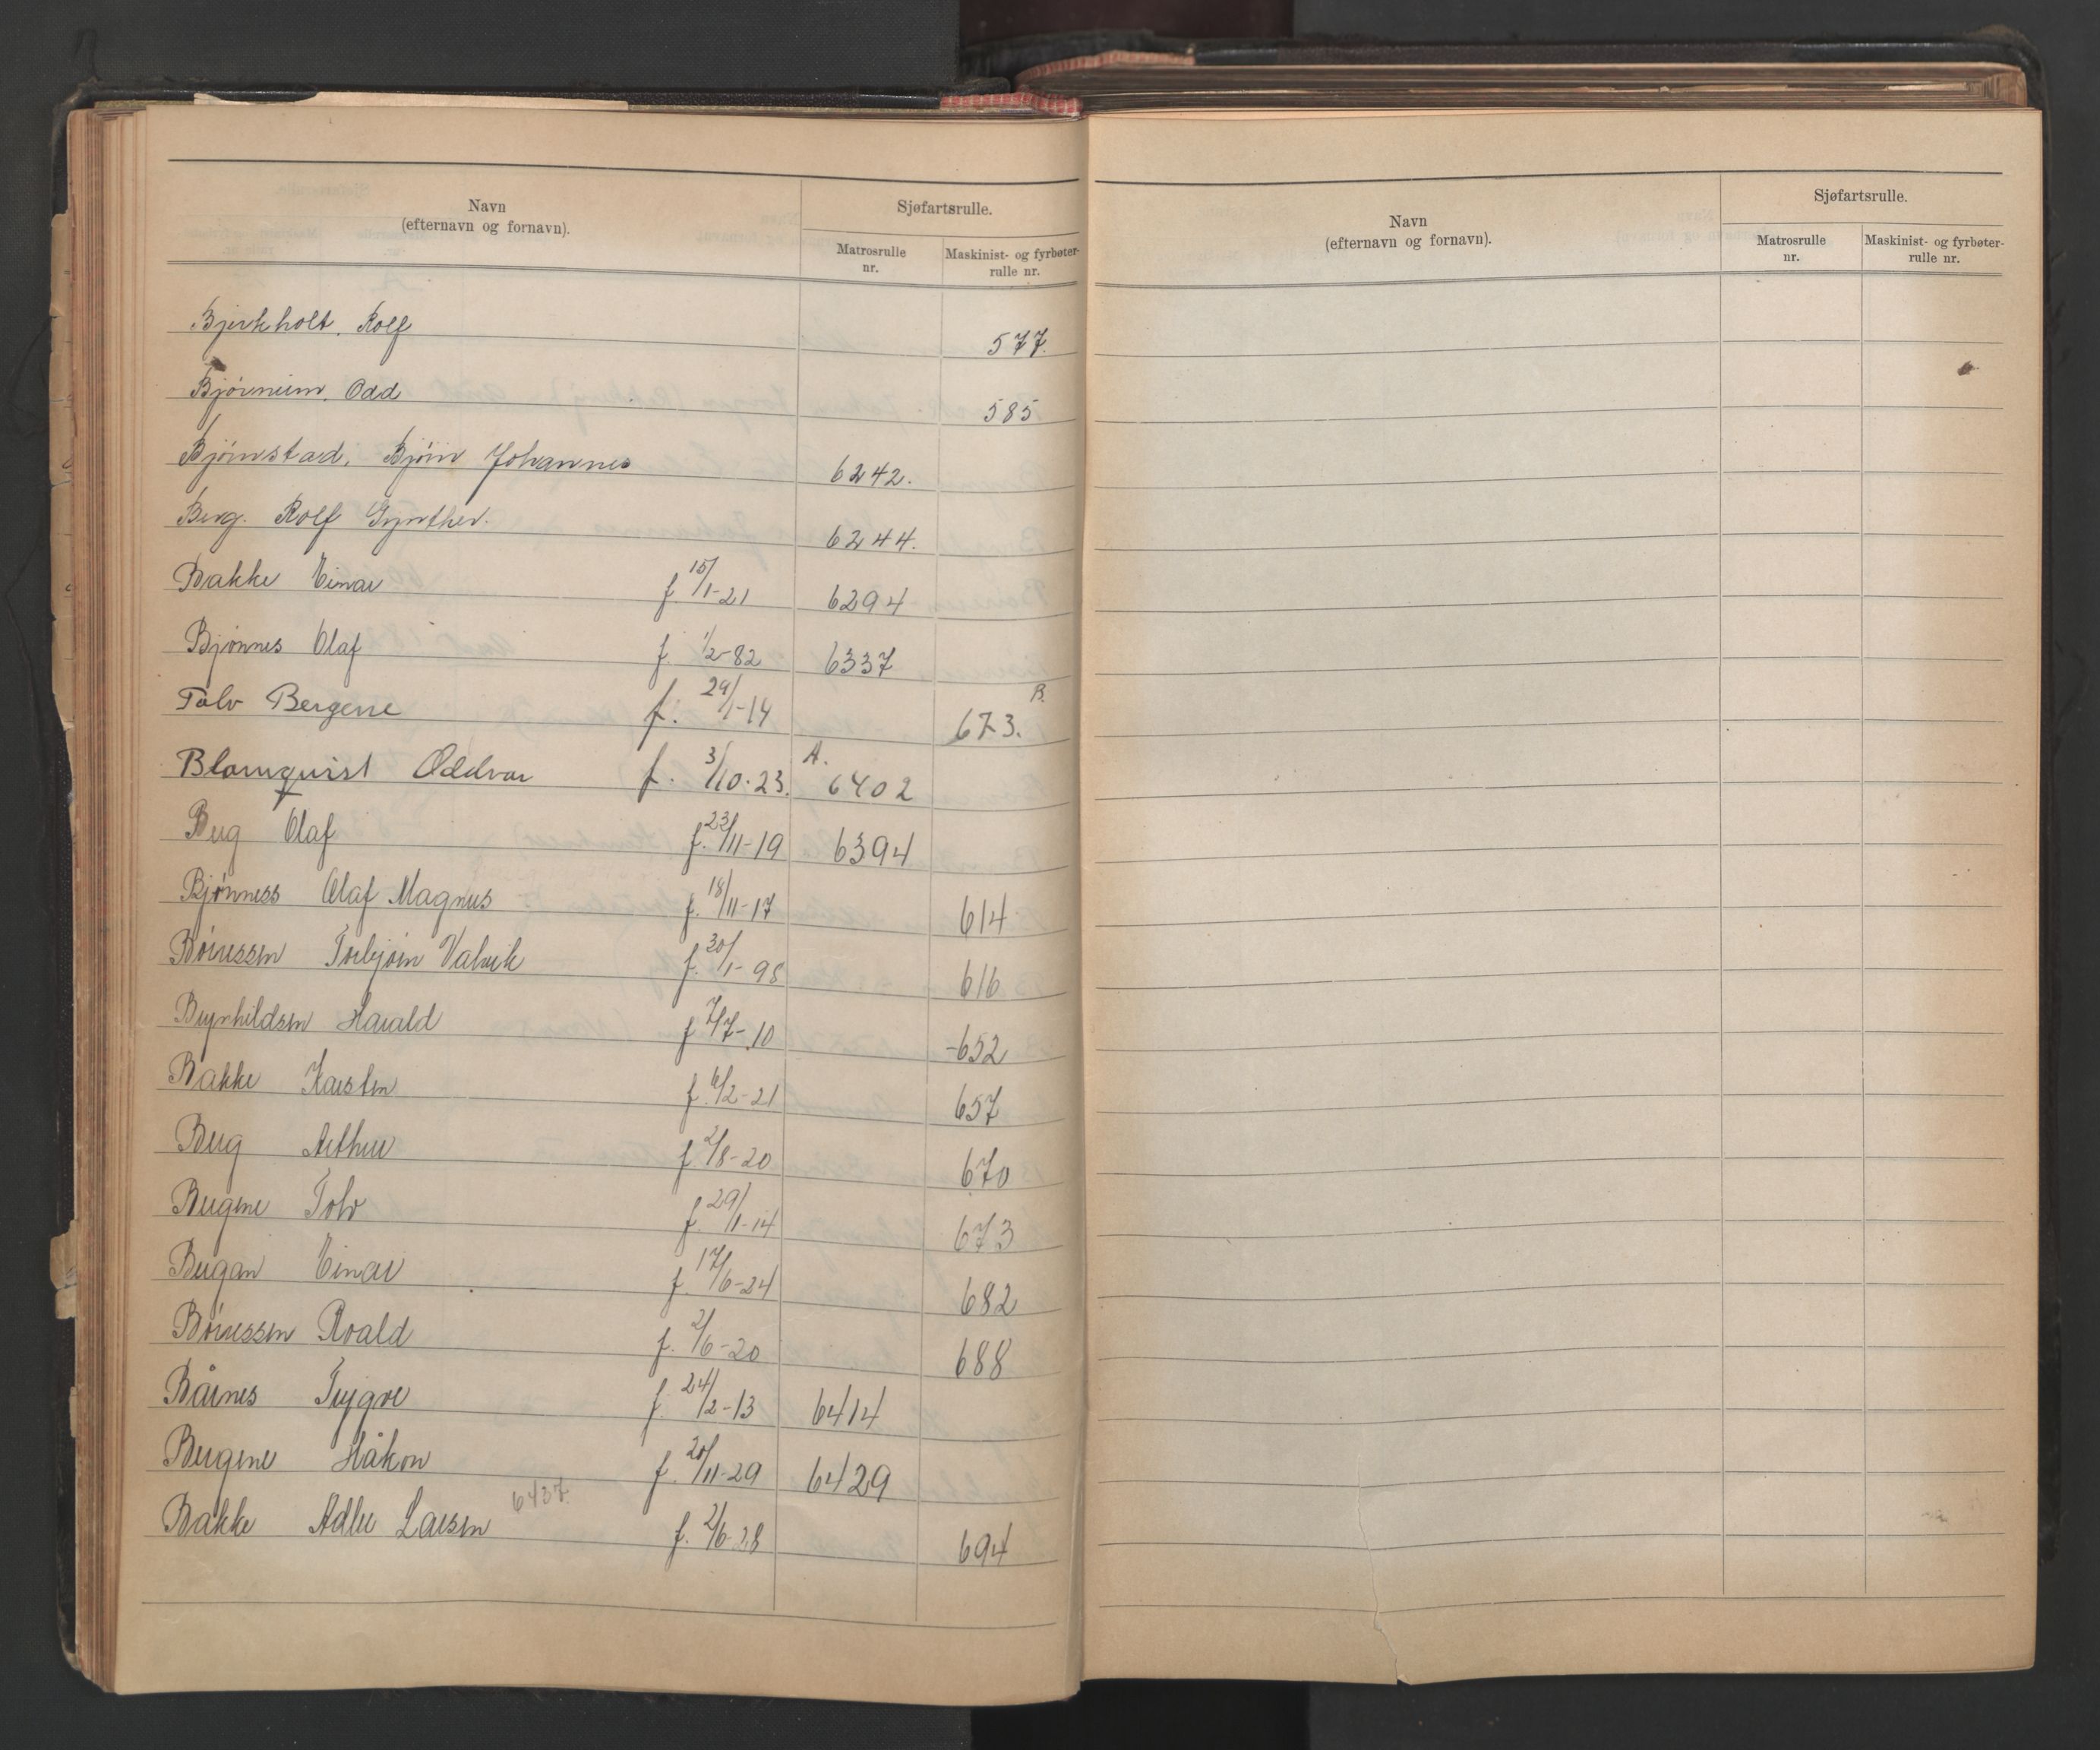 Navn
(efternavn og fornavn).
Sjøfartsrulle.
Matrosrulle nr.
Maskinist- og fyrbøter-rulle nr.
Bjerkholt, Rolf 577.
Bjørneim, Odd 585
Bjørnstad, Bjørn Johannes 6242.
Berg. Rolf Gynther. 6244.
Bakke Einar f. 15/1-21 6294
Bjønnes Olaf f. 1/2-82 6337
Tolv Bergene f. 29/1-14 673. B.
Blomquist Oddvar f. 3/10-23. A. 6402
Berg Olaf f. 23/11-19 6394
Bjønness Olaf Magnus f. 18/11-17 614
Børressen Torbjørn Valvik f. 30/1-98 616
Brynhildsen Harald f 7/7-10 -652
Bakke Karsten f. 6/2-21 657
Berg Arthur f. 2/8-20 670
Bergene Tolv f. 29/1-14 673
Bergan Einar f. 17/6-24 682
Børressen Roald f. 2/6-20 688
Bårnes Trygve f. 24/2-13 6414
Bergene Håkon f. 20/11-29 6429
Bakke Adler Larsen 6437. f. 2/6-28 694
Navn
(efternavn og fornavn).
Sjøfartsrulle.
Matrosrulle nr.
Maskinist- og fyrbøter-rulle nr.